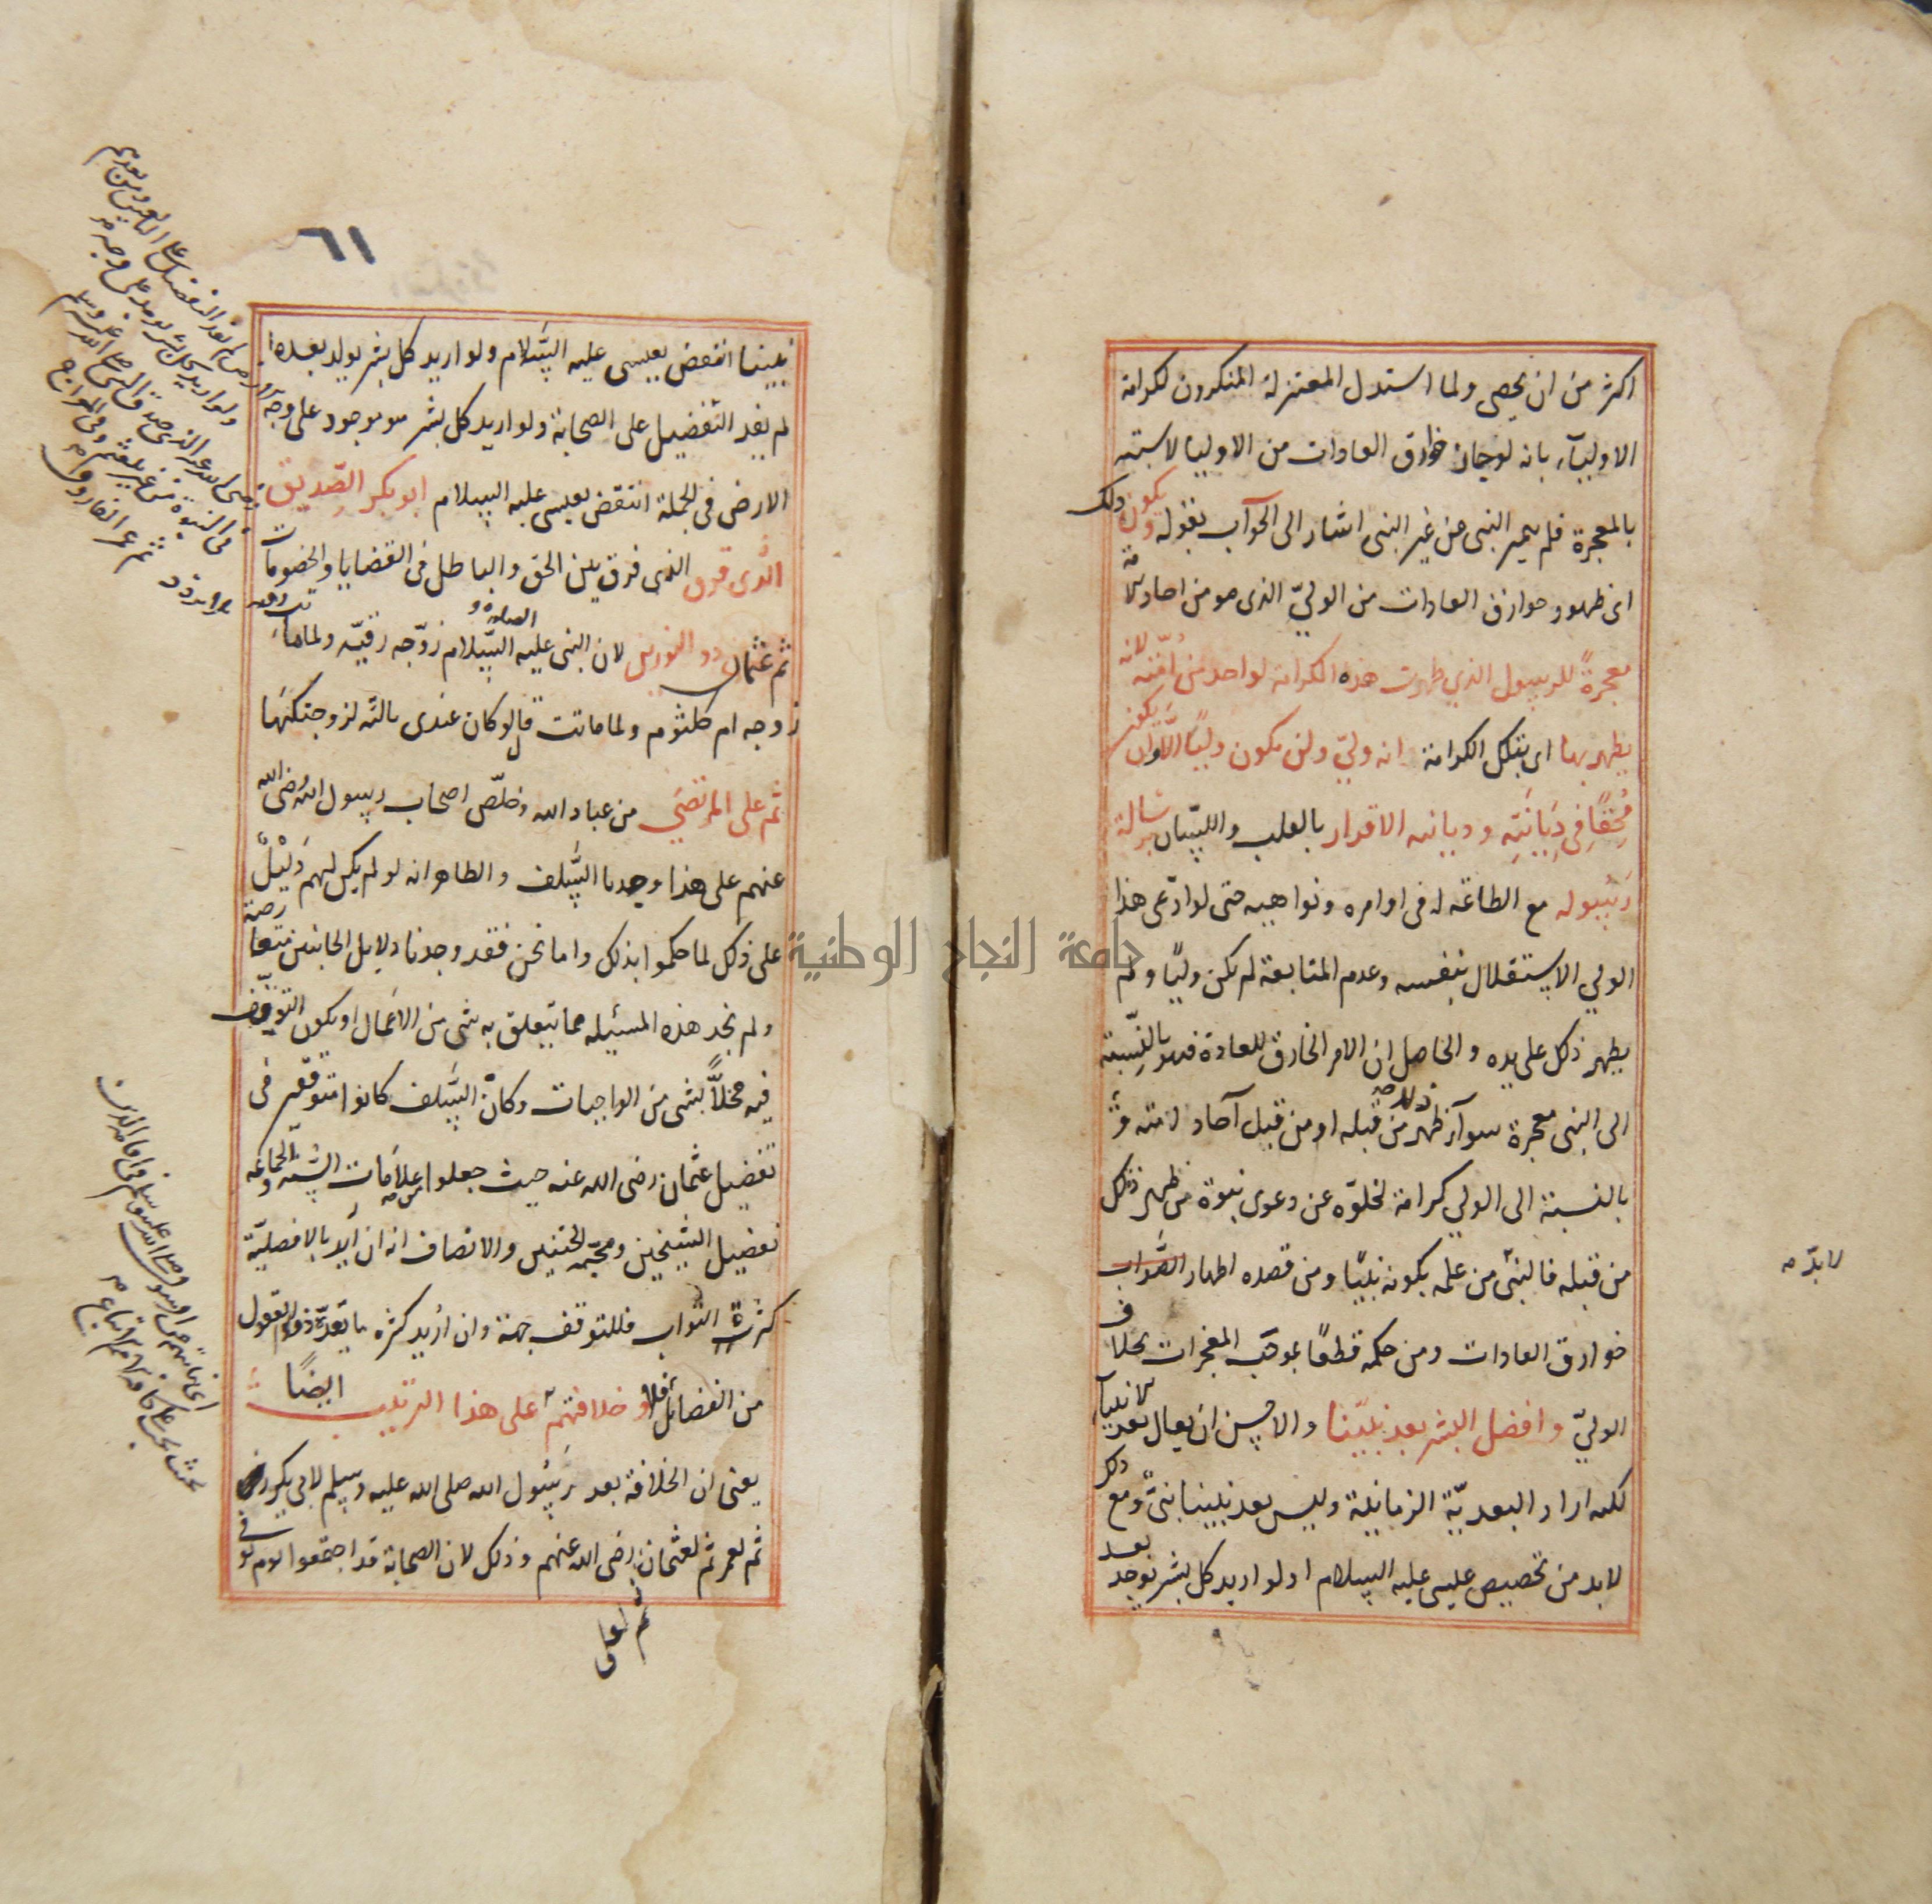 اكثر من ان يحصى ولما استدل المعتزلة المنكرون لكرامة
الاوليآء بانه لو جاز خوارق العادات من الاوليا لاشتبه
بالمعجزة فلم يتميز النبى من غير النبى اشار الى الجوآب بقوله ويكون ذلك
اى ظهور خوارق العادات من الولىّ الذى هو من احاد الامة
معجزةً للرسول الذي ظهرت هذه الكرامة لواحد من اُمّته لانه
يظهر بها اى بتلك الكرامة انه ولىّ ولن يكون وليًا الّا وان يكون
مُحِقًا فى دِيَانَتِه وديانته الاقرار بالقلب واللسان برسالة
رَسُوله مع الطاعة له فى اوامره ونواهيه حتى لو ادّعى هذا
الولي الاستقلال بنفسه وعدم المتابعة لم يكن وليًا ولم
يظهر ذلك على يده والحاصل ان الامر الخارق للعادة فهو بالنسبة
الى النبى معجزة سوآء ظهر من قبله او من قبل آحاد امته و
بالنسبة الى الولي كرامة لخلوّه عن دعوى نبوة من ظهر ذلك
من قبله فالنبى من علمه بكونه نبيًا ومن قصده اظهار
خوارق العادات ومن حكمه قطعًا بموجب المعجزات بخلاف
الولىّ وافضل البشر بعد نبيّنا والاحسن ان يقال بعد الانبيآء
لكنه اراد البعديّة الزمانية وليس بعد نبينا نبىّ ومع ذلك
لابد من تخصيص عيسى عليه السلام اذ لو اريد كل بشر يوجد بعد
لابدّ
٦١
نبينا انتقض بعيسى عليه السَّلام ولو اريد كل بشر يولد بعده
لم يفد التفضيل على الصحابة ولو اريد كل بشر هو موجود على وجه
الارض فى الجملة انتقض بعيسى عليه السلام ابو بكر الصِّديق
الذى فرق بين الحق والباطل فى القضايا والخصومات
ثم عثمان ذو النورين لان النبى عليه الصلوة والسَّلام زوّجه رقيّه ولما ماتت رقية
زوجه ام كلثوم ولما ماتت قال لو كان عندى ثالثة لزوجتكها
ثم على المرتضى من عباد الله وخلّص اصحاب رسول الله رضى الله
عنهم على هذا وجدنا السَّلف والظاهر انه لو لم يكن لهم دَلِيْلٌ
على ذلك لما حكموا بذلك واما نحن فقد وجدنا دلايل الجانبين متعارضة
ولم نجد هذه المسئيله مما يتعلق به شى من الاعمال او يكون التوقف
فيه مخلًّا بشى من الواجبات وكانّ السَّلف كانوا متوقفين فى
تفضيل عثمان رضى الله عنه حيث جعلوا من علامات السنة والجماعة
تفضيل الشيخين ومحبّة الختنين والانصاف انه ان اُريد بالافضليّة
كثرة الثواب فللتوقف جهة وان اُريد كثرة ما يعدّه ذوو العقول
من الفضائل فلا وخلافتهم على هذا الترتيب ايضًا
يعنى ان الخلافة بعد رَسُول الله صلى الله عليه وسلم لابى بكر
ثم لعمر ثم لعثمان رضى الله عنهم وذلك لان الصحابة قد اجتمعوا يوم توفى
جامعة النجاح الوطنية